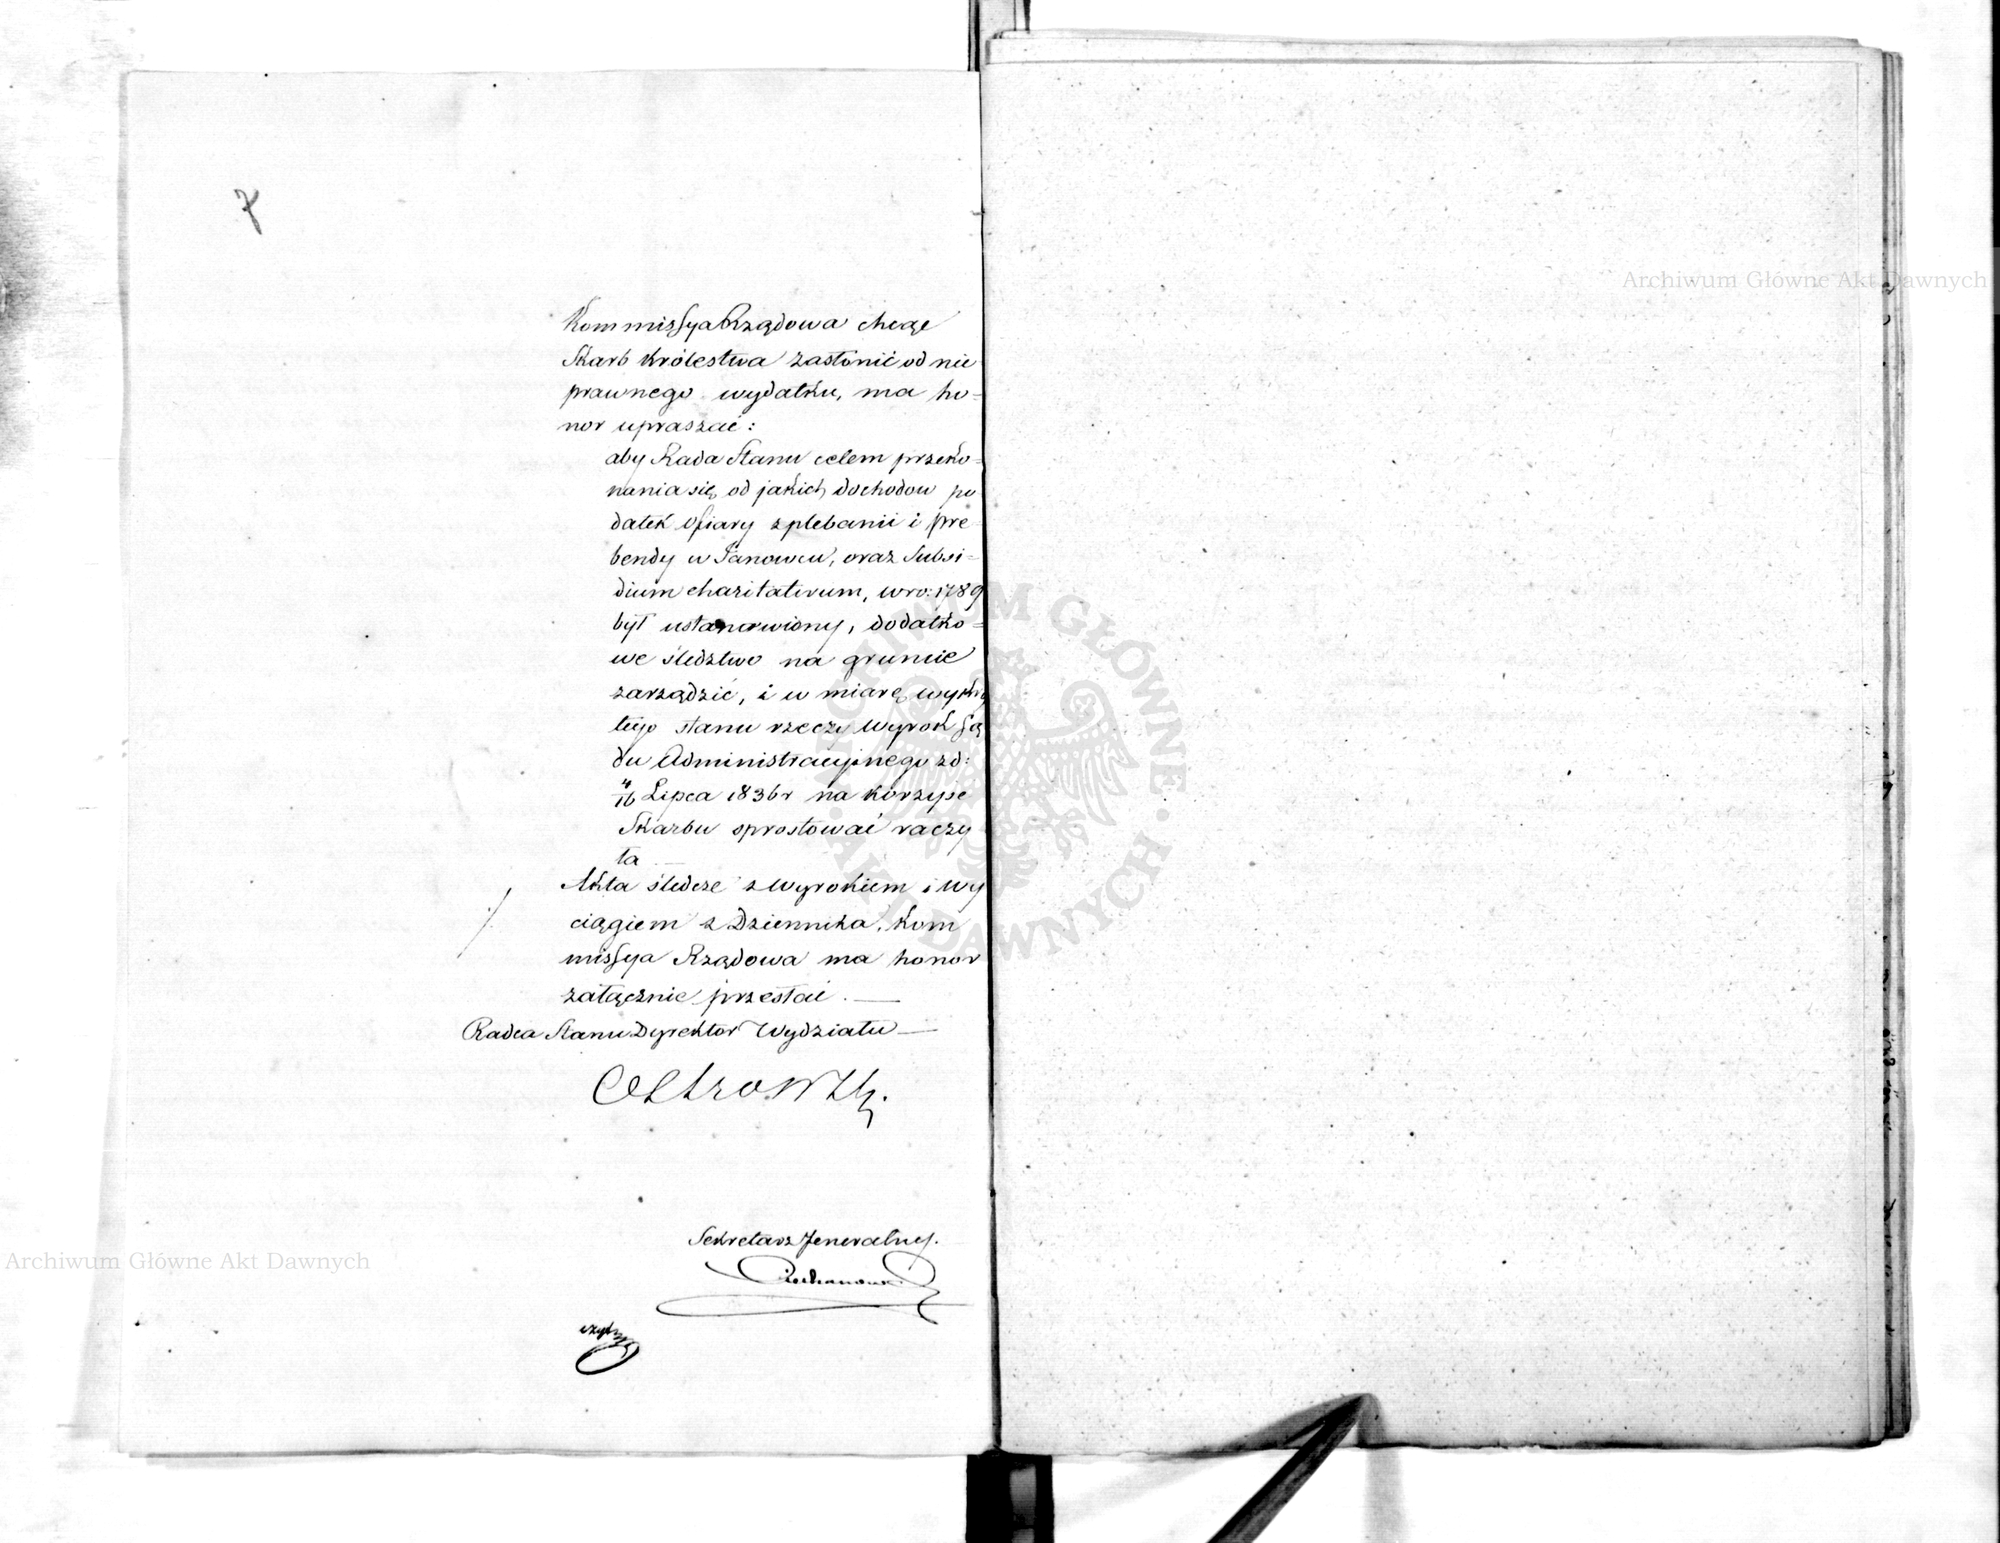 7
Kommissya Rządowa chcąc
Skarb Królestwa zasłonić od nie
prawnego wydatku, ma ho-
nor upraszać:
aby Rada Stanu celem przeko-
nania się od jakich dochodow po
datek Ofiary z plebanii i pre
bendy w Janowcu, oraz Subsi-
dium charitativum, w ro: 1789
był ustanowiony, dodatko-
we śledztwo na gruncie
zarządzić, i w miarę wykry
tego stanu rzeczy Wyrok Są
du Administracyjnego z d:
4/16 Lipca 1836 r na korzyść
Skarbu sprostować raczy
ła
Akta śledcze z Wyrokiem i Wy
ciągiem z Dziennika, Kom
missya Rządowa ma honor
załącznie przesłać. —
Radca Stanu Dyrektor Wydziału —
Sekretarz Jeneralny.
Archiwum Główne Akt Dawnych
Archiwum Główne Akt Dawnych
ARCHIWUM GŁÓWNE AKT DAWNYCH